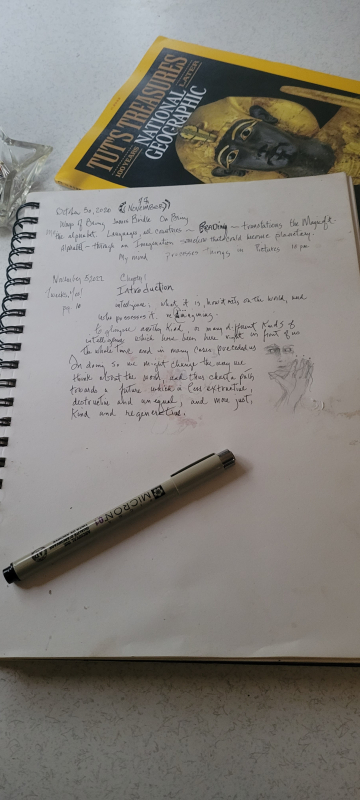 TUT'S TREASURES
100 YEARS LATER
NATIONAL
GEOGRAPHIC
October 30, 2020 (NOVEMBER)
Ways of Being James Bridle On Being
the alphabet. Languages, all creatures — Bending — translations the
Alphabet — through an Imagination somehow that could become planetary
My mind processes things in Pictures
November 3, 2022 Chapter 1
Introduction
pg 10 intelligence. What it is, how it acts on the world, and
who possesses it. reimagining.
To glimpse another kind, or many different kinds of
intelligence which have been here right in front of us
the whole time and in many cases preceded us
In doing so we might change the way we
think about the world, and thus chart a path
towards a future which is less extractive,
destructive and unequal, and more just,
kind and regenerative.
MICRON